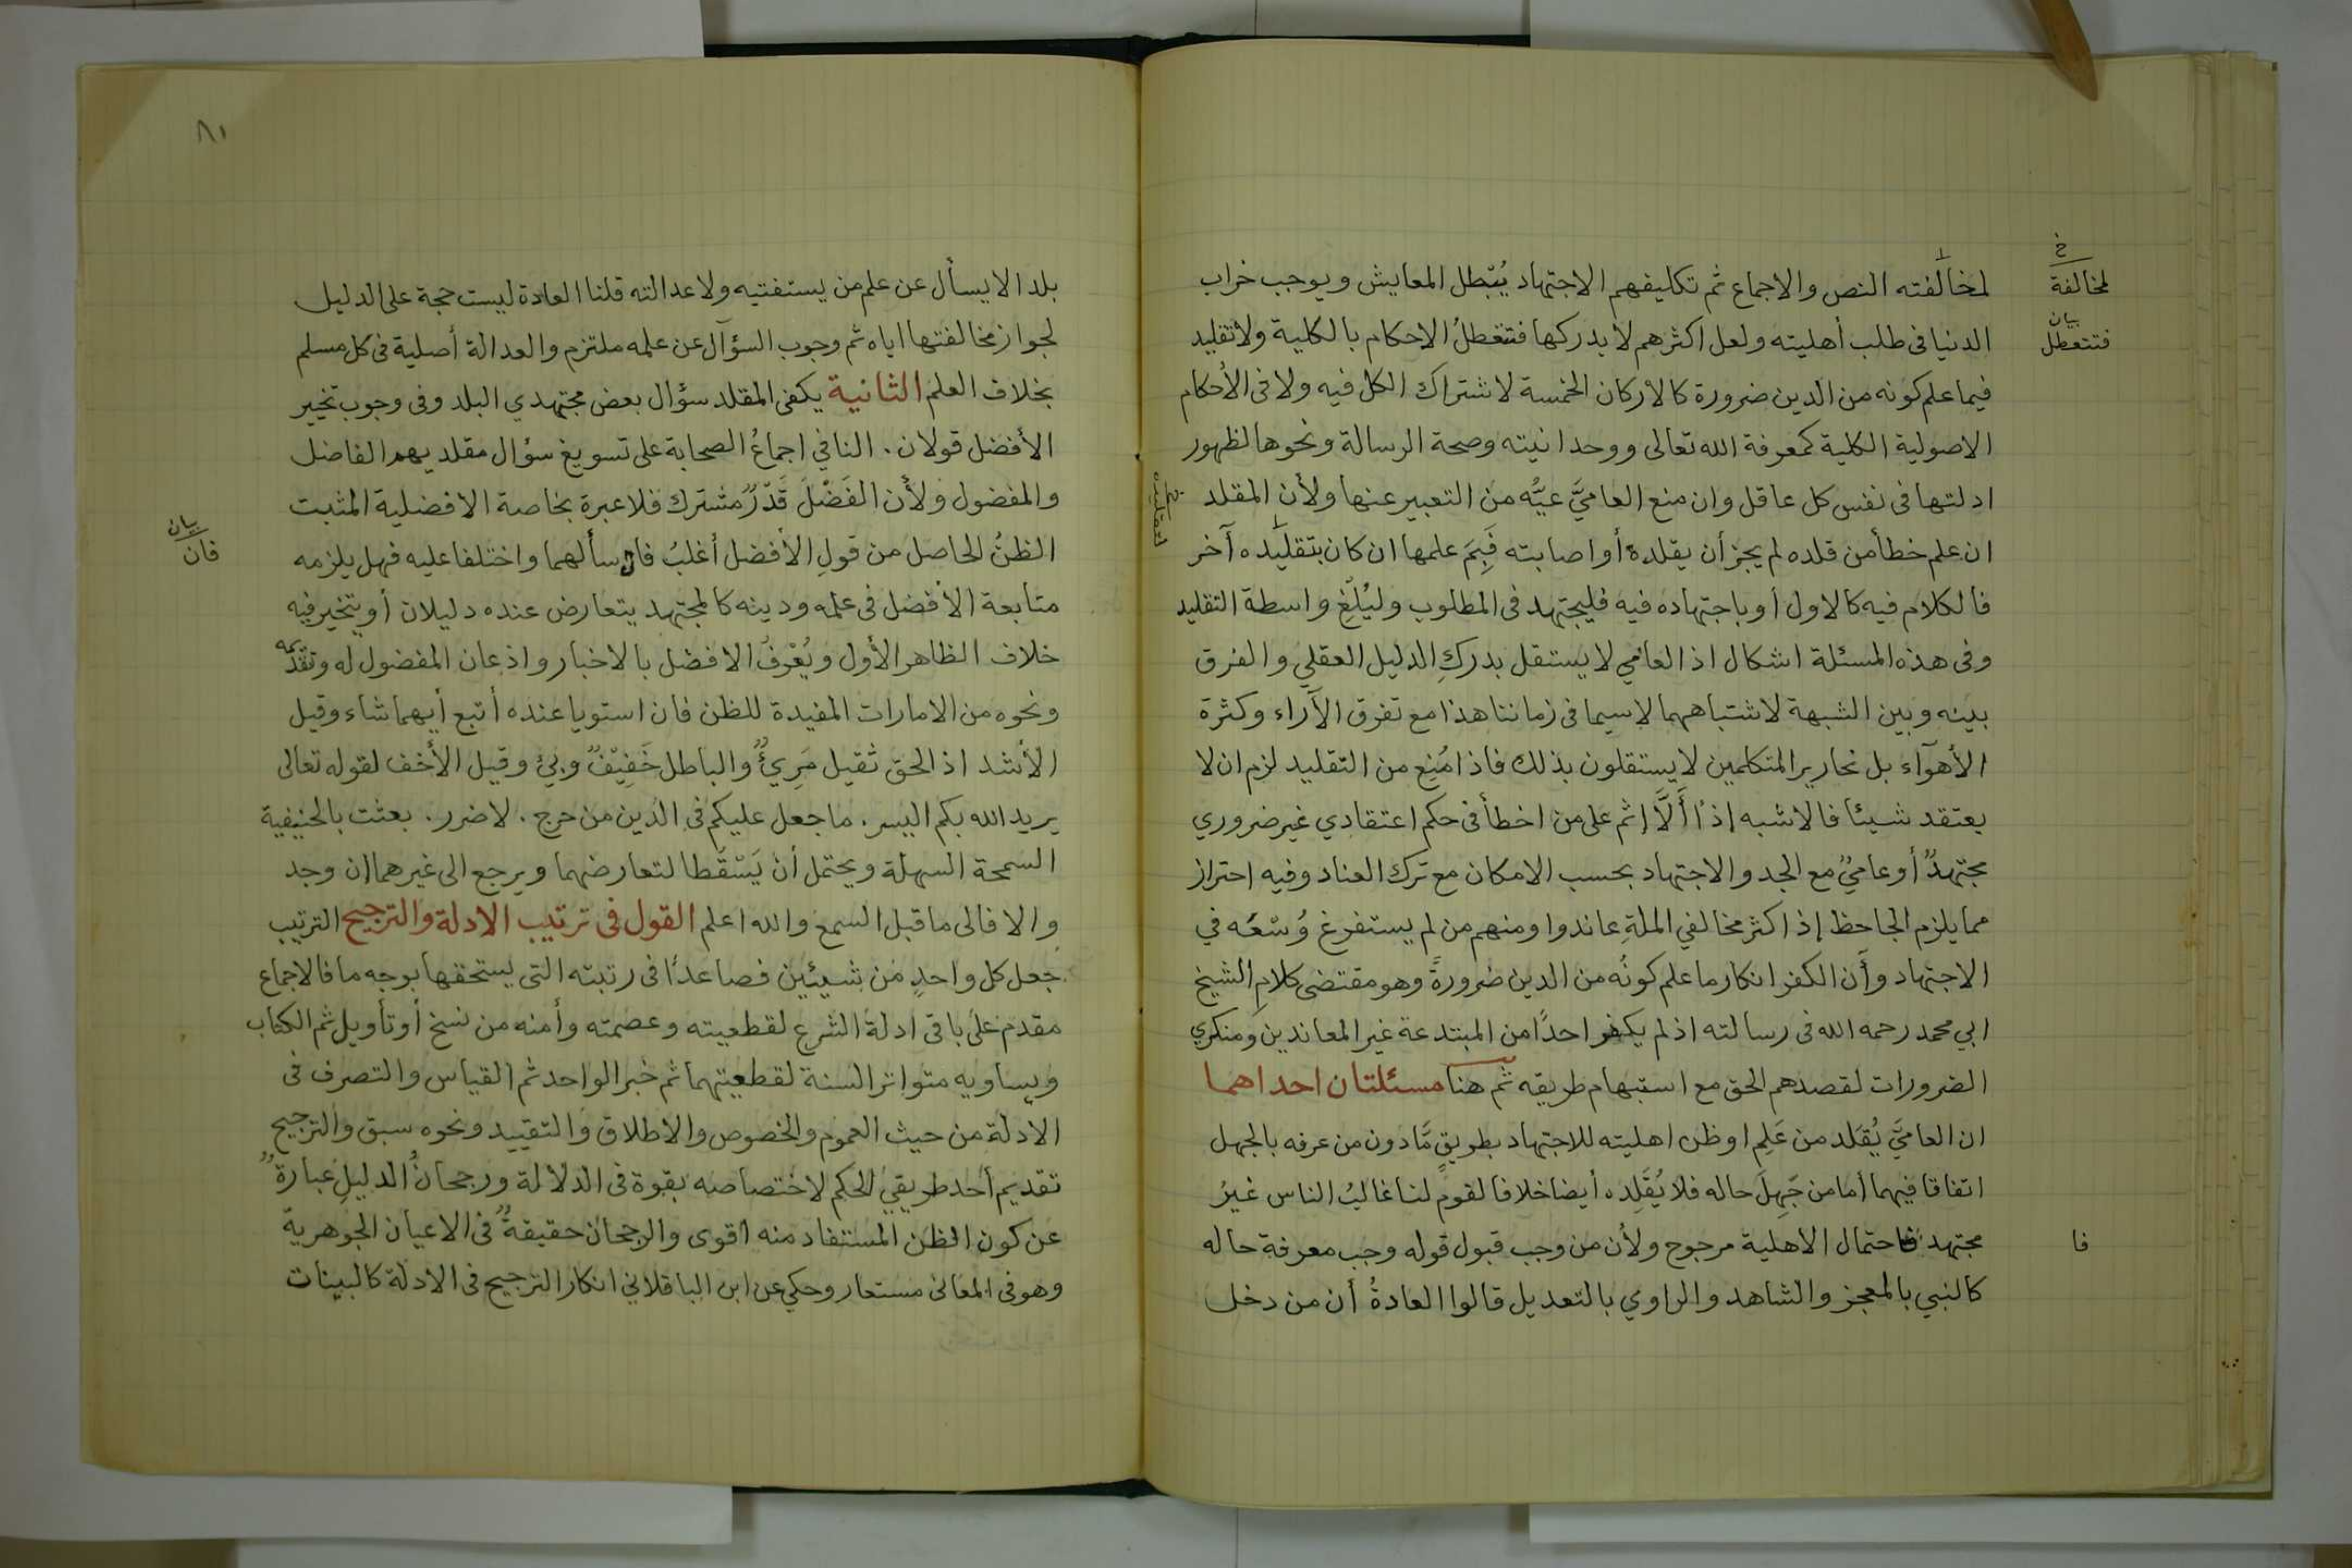 لمخالفته النص والاجماع ثم تكليفهم الاجتهاد يُبْطل المعايش ويوجب خراب
الدنيا فى طلب أهليته ولعل اكثرهم لا يدركها فتتعطلُ الاحكام بالكلية ولا تقليد
فيما علم كونه من الدين ضرورة كالاركان الخمسة لاشتراك الكل فيه ولا فى الأحكام
الاصولية الكلية كمعرفة الله تعالى ووحدانيته وصحة الرسالة ونحوها لظهور
ادلتها فى نفس كل عاقل وان منع العاميَّ عيُّه من التعبير عنها ولأن المقلد
ان علم خطأ من قلده لم يجز أن يقلده أو اصابته فَبِمَ علمها ان كان بتقليده آخر
فالكلام فيه كالاول أو باجتهاده فيه فليجتهد فى المطلوب وليُلْغِ واسطة التقليد
وفى هذه المسئلة اشكال اذ العامي لا يستقل بدركِ الدليل العقلي والفرق
بينه وبين الشبهة لاشتباههما لاسيما فى زماننا هذا مع تفرق الآراء وكثرة
الأهوآء بل نحارير المتكلمين لا يستقلون بذلك فاذا مُنِع من التقليد لزم ان لا
يعتقد شيئا فالاشبه اذًا أَلَّا اثم على من اخطأ فى حكم اعتقادي غير ضروري
مجتهدٌ أو عاميٌ مع الجد والاجتهاد بحسب الامكان مع ترك العناد وفيه احتراز
مما يلزم الجاحظ إذ اكثر مخالفي الملةِ عاندوا ومنهم من لم يستفرغ وُسْعَه في
الاجتهاد وأَن الكفر انكار ما علم كونُه من الدين ضرورةً وهو مقتضى كلامِ الشيخ
ابي محمد رحمه الله فى رسالته اذ لم يكفر احدًا من المبتدعة غير المعاندين ومنكري
الضرورات لقصدهم الحق مع استبهام طريقه ثم هنا مسئلتان احداهما
ان العاميَّ يُقَلد من عَلِم او ظن اهليته للاجتهاد بطريقٍ مَّا دون من عرفه بالجهل
اتفاقا فيهما أما من جَهِلَ حاله فلا يُقَلِده أيضا خلافا لقوم لنا غالبُ الناس غيرُ
مجتهد فاحتمال الاهلية مرجوح ولأن من وجب قبول قوله وجب معرفة حاله
كالنبي بالمعجز والشاهد والراوي بالتعديل قالوا العادةُ أن من دخل
خ
لمخالفة
بيان
فتتعطل
لتقليده
فا
٨١
بلدا لا يسأل عن علم من يستفتيه ولا عدالته قلنا العادة ليست حجة على الدليل
لجواز مخالفتها اياه ثم وجوب السؤال عن علمه ملتزم والعدالة أصلية فى كل مسلم
بخلاف العلم الثانية يكفى المقلد سؤال بعض مجتهدي البلد وفى وجوب تخيير
الأفضل قولان . النافي اجماعُ الصحابة على تسويغ سؤال مقلديهم الفاضل
والمفضول ولأن الفَضْلَ قَدْرٌ مشترك فلا عبرة بخاصة الافضلية المثبت
الظنُ الحاصل من قولِ الأفضل أغلبُ فان سألهما واختلفا عليه فهل يلزمه
متابعة الأفضل فى علمه ودينه كالمجتهد يتعارض عنده دليلان أو يتخير فيه
خلاف الظاهر الأول ويُعْرفُ الافضل بالاخبار واذعان المفضول له وتقدمه
ونحوه من الامارات المفيدة للظن فان استويا عنده أتبع أيهما شاء وقيل
الأشد اذ الحق ثقيل مَرِيٌ والباطل خَفِيْفٌ وبيٌ وقيل الأخف لقوله تعالى
يريد الله بكم اليسر . ما جعل عليكم فى الدين من حرج . لا ضرر . بعثت بالحنيفية
السمحة السهلة ويحتمل أن يَسْقُطا لتعارضهما ويرجع الى غيرهما ان وجد
والا فالى ما قبل السمع والله اعلم القول فى ترتيب الادلة والترجيح الترتيب
جعل كل واحدٍ من شيئين فصاعدًا فى رتبته التى يستحقها بوجه ما فالاجماع
مقدم على باقى ادلة الشرع لقطعيته وعصمته وأمنه من نسخ أو تأويل ثم الكتاب
ويساويه متواتر السنة لقطعيتهما ثم خبر الواحد ثم القياس والتصرف فى
الادلة من حيث العموم والخصوص والاطلاق والتقييد ونحوه سبق والترجيح
تقديم أحد طريقي الحكم لاختصاصه بقوة فى الدلالة ورجحانُ الدليلِ عبارةٌ
عن كون الظن المستفاد منه اقوى والرجحان حقيقةٌ فى الاعيان الجوهرية
وهو فى المعانى مستعار وحكي عن ابن الباقلاني انكار الترجيح فى الادلة كالبينات
بيان
فان